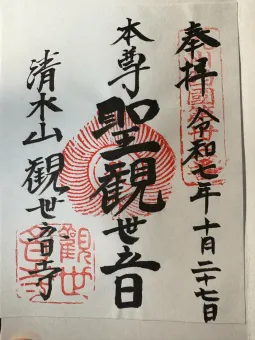 奉拝 令和七年十月二十七日
本尊 聖観世音
清水山 観世音寺